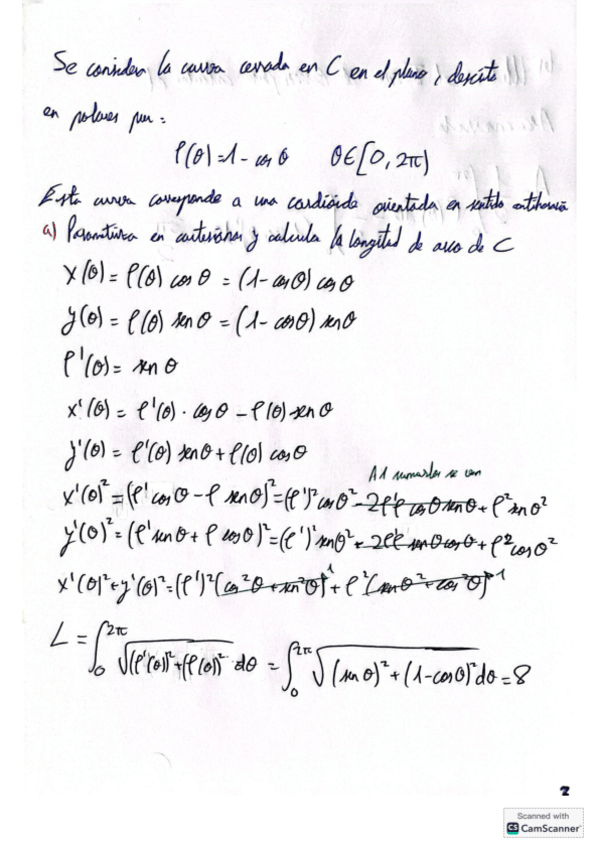 Se considera la curva cerrada en C en el plano, descrita
en polares por:
ρ(θ)=1-cos θ θ∈[0,2π)
Esta curva corresponde a una cardioide orientada en sentido antihorario
a) Parametriza en cartesianas y calcula la longitud de arco de C
x(θ)=ρ(θ) cos θ = (1-cosθ) cosθ
y(θ)=ρ(θ) sen θ = (1-cosθ) senθ
ρ'(θ)= sen θ
x'(θ)= ρ'(θ)·cos θ - ρ(θ) senθ
y'(θ)= ρ'(θ) senθ + ρ(θ) cosθ
Al sumarlas se van
x'(θ)²=(ρ'cosθ - ρ senθ)²=(ρ')²cosθ² - 2ρρ' cosθ senθ + ρ² senθ²
y'(θ)²=(ρ'senθ + ρ cosθ)²=(ρ')²senθ² + 2ρρ' senθ cosθ + ρ²cosθ²
x'(θ)²+y'(θ)²=(ρ')²(cos²θ + sen²θ)¹ + ρ²(senθ² + cos²θ)¹
L = ∫₀^2π √(ρ'(θ))²+(ρ(θ))² dθ = ∫₀^2π √(sen θ)²+(1-cosθ)² dθ = 8
2
Scanned with
CS CamScanner